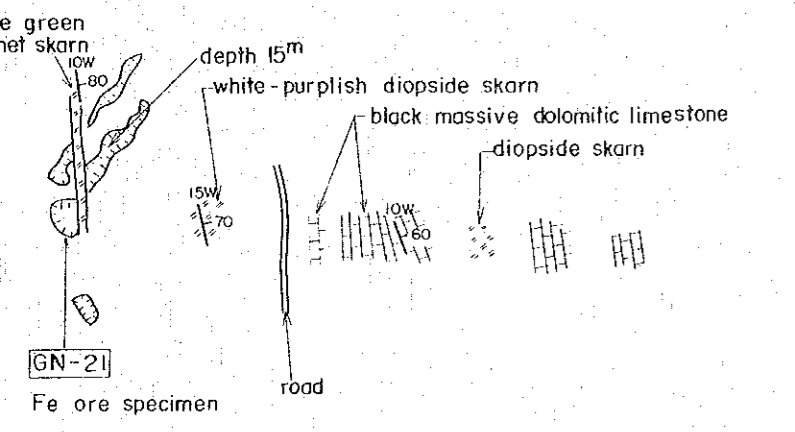 e green
net skarn
10W
80
depth 15m
white-purplish diopside skarn
black massive dolomitic limestone
diopside skarn
15W
70
10W
60
GN-21
road
Fe ore specimen